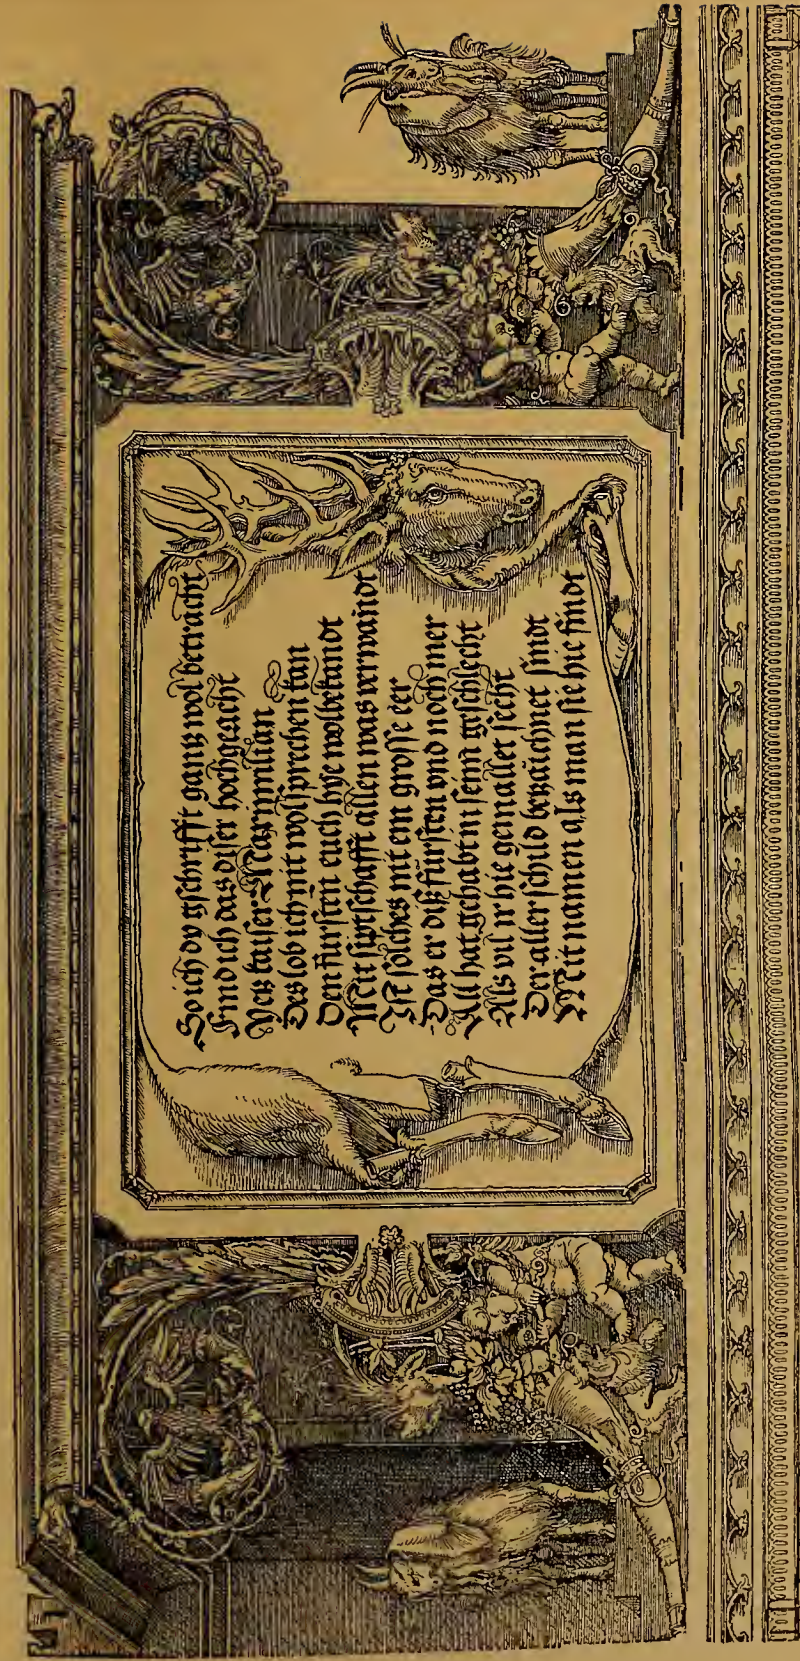 So ich dy gschrifft gantz wol betracht
Find ich das diser hochgeacht
Vetz kaiser Maximilian
Des lob ich nit wolsprechen kan
Den fürsten euch hye wolbekandt
Mit siptschafft allen was verwandt
Ist solches nit ein grosse eer
Das er diß fürsten vnd noch mer
All hat gehabt in seim geschlecht
Als vil ir hie gemallet secht
Der aller schild bezaichnet sindt
Mit namen als man sie hie findt